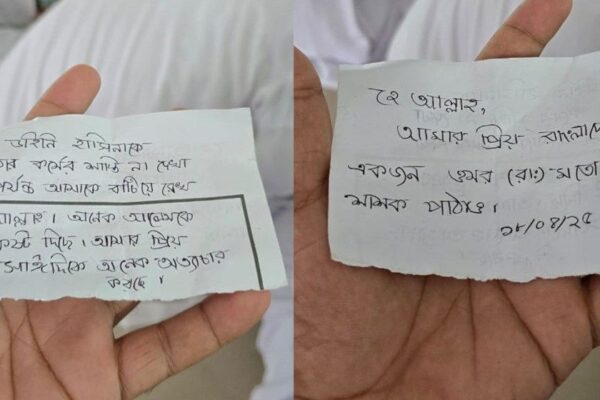 ডাইনি হাসিনাকে
কর্মের শাস্তি না দেখা
পর্যন্ত আমাকে বাঁচিয়ে রেখ
আল্লাহ। অনেক আলেমকে
কষ্ট দিছে। আমার প্রিয়
সাঈদিকে অনেক অত্যাচার
করছে।
হে আল্লাহ,
আমার প্রিয় বাংলাদে
একজন ওমর (রাঃ) মতো
শাসক পাঠাও।
১৮/০৪/২৫